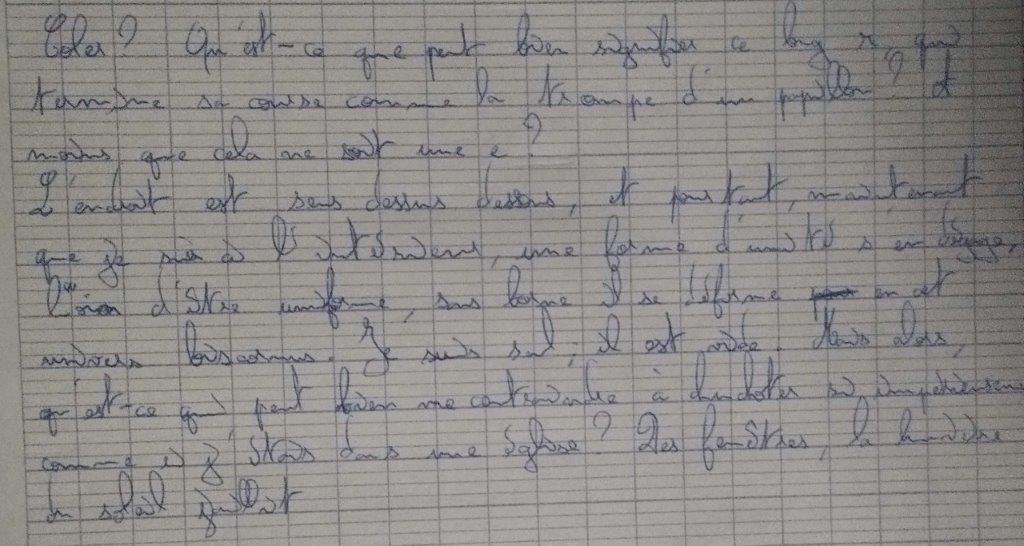 Coler? Qu'est-ce que peut bien signifier ce long r qui
termine sa course comme la trompe d'un papillon? A
moins que cela ne soit une e?
L'endroit est sens dessus dessous, et pourtant, maintenant
que je suis à l'intérieur, une forme d'unité s'en dégage,
Loin d'être uniforme, sans borne il se déforme en cet
univers biscornus. Je suis seul; il est vide. Mais alors,
qu'est-ce qui peut bien me contraindre à chuchoter si impérieusement
comme si j'étais dans une église? Des fenêtres, la lumière
du soleil jaillit